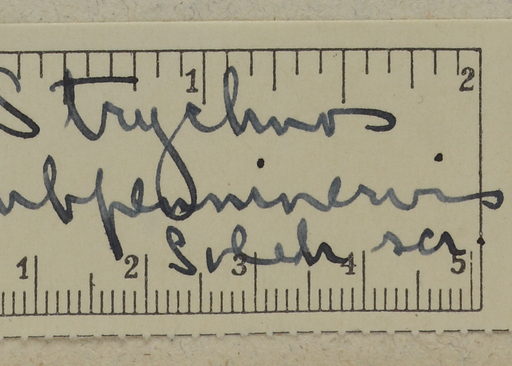 1 2
Strychnos
ubpenninervis
Soler. scr.
1 2 3 4 5